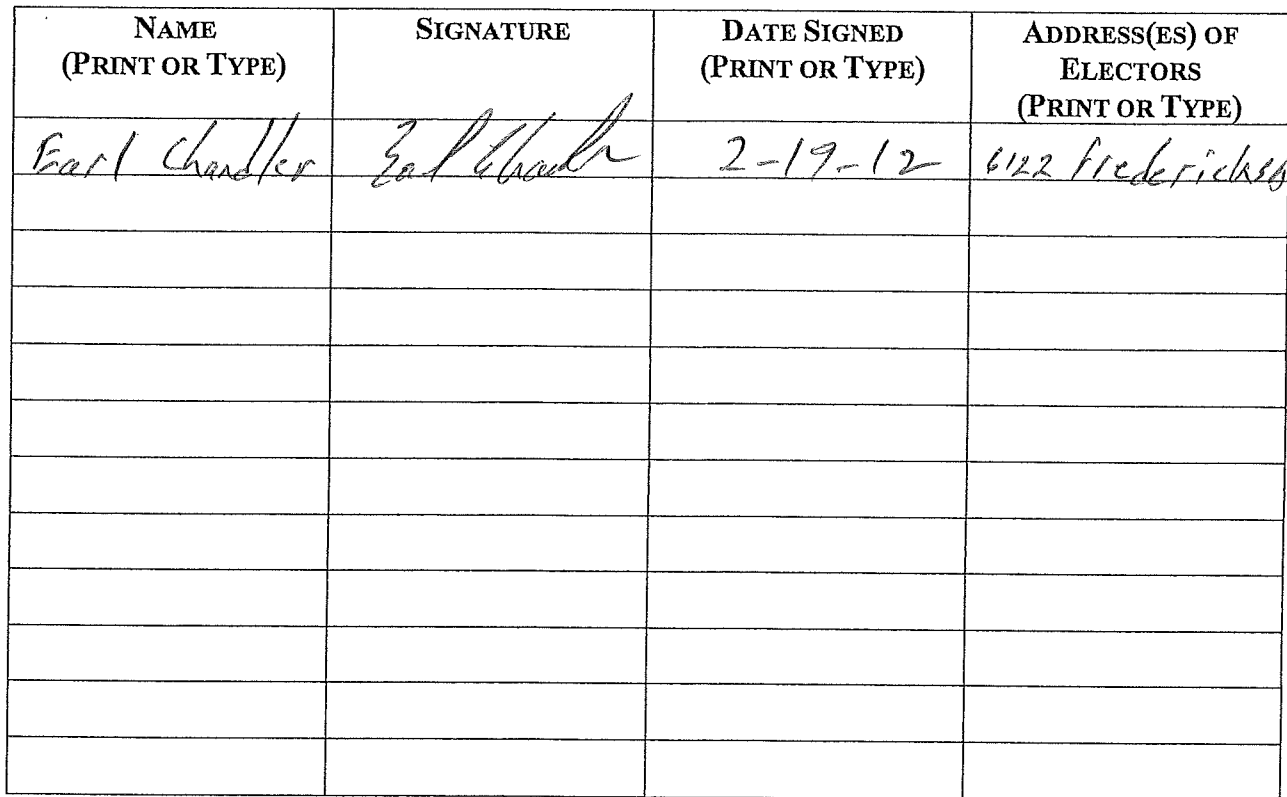 NAME
(PRINT OR TYPE)
SIGNATURE
DATE SIGNED
(PRINT OR TYPE)
ADDRESS(ES) OF
ELECTORS
(PRINT OR TYPE)
Earl Chandler
2-19-12
6122